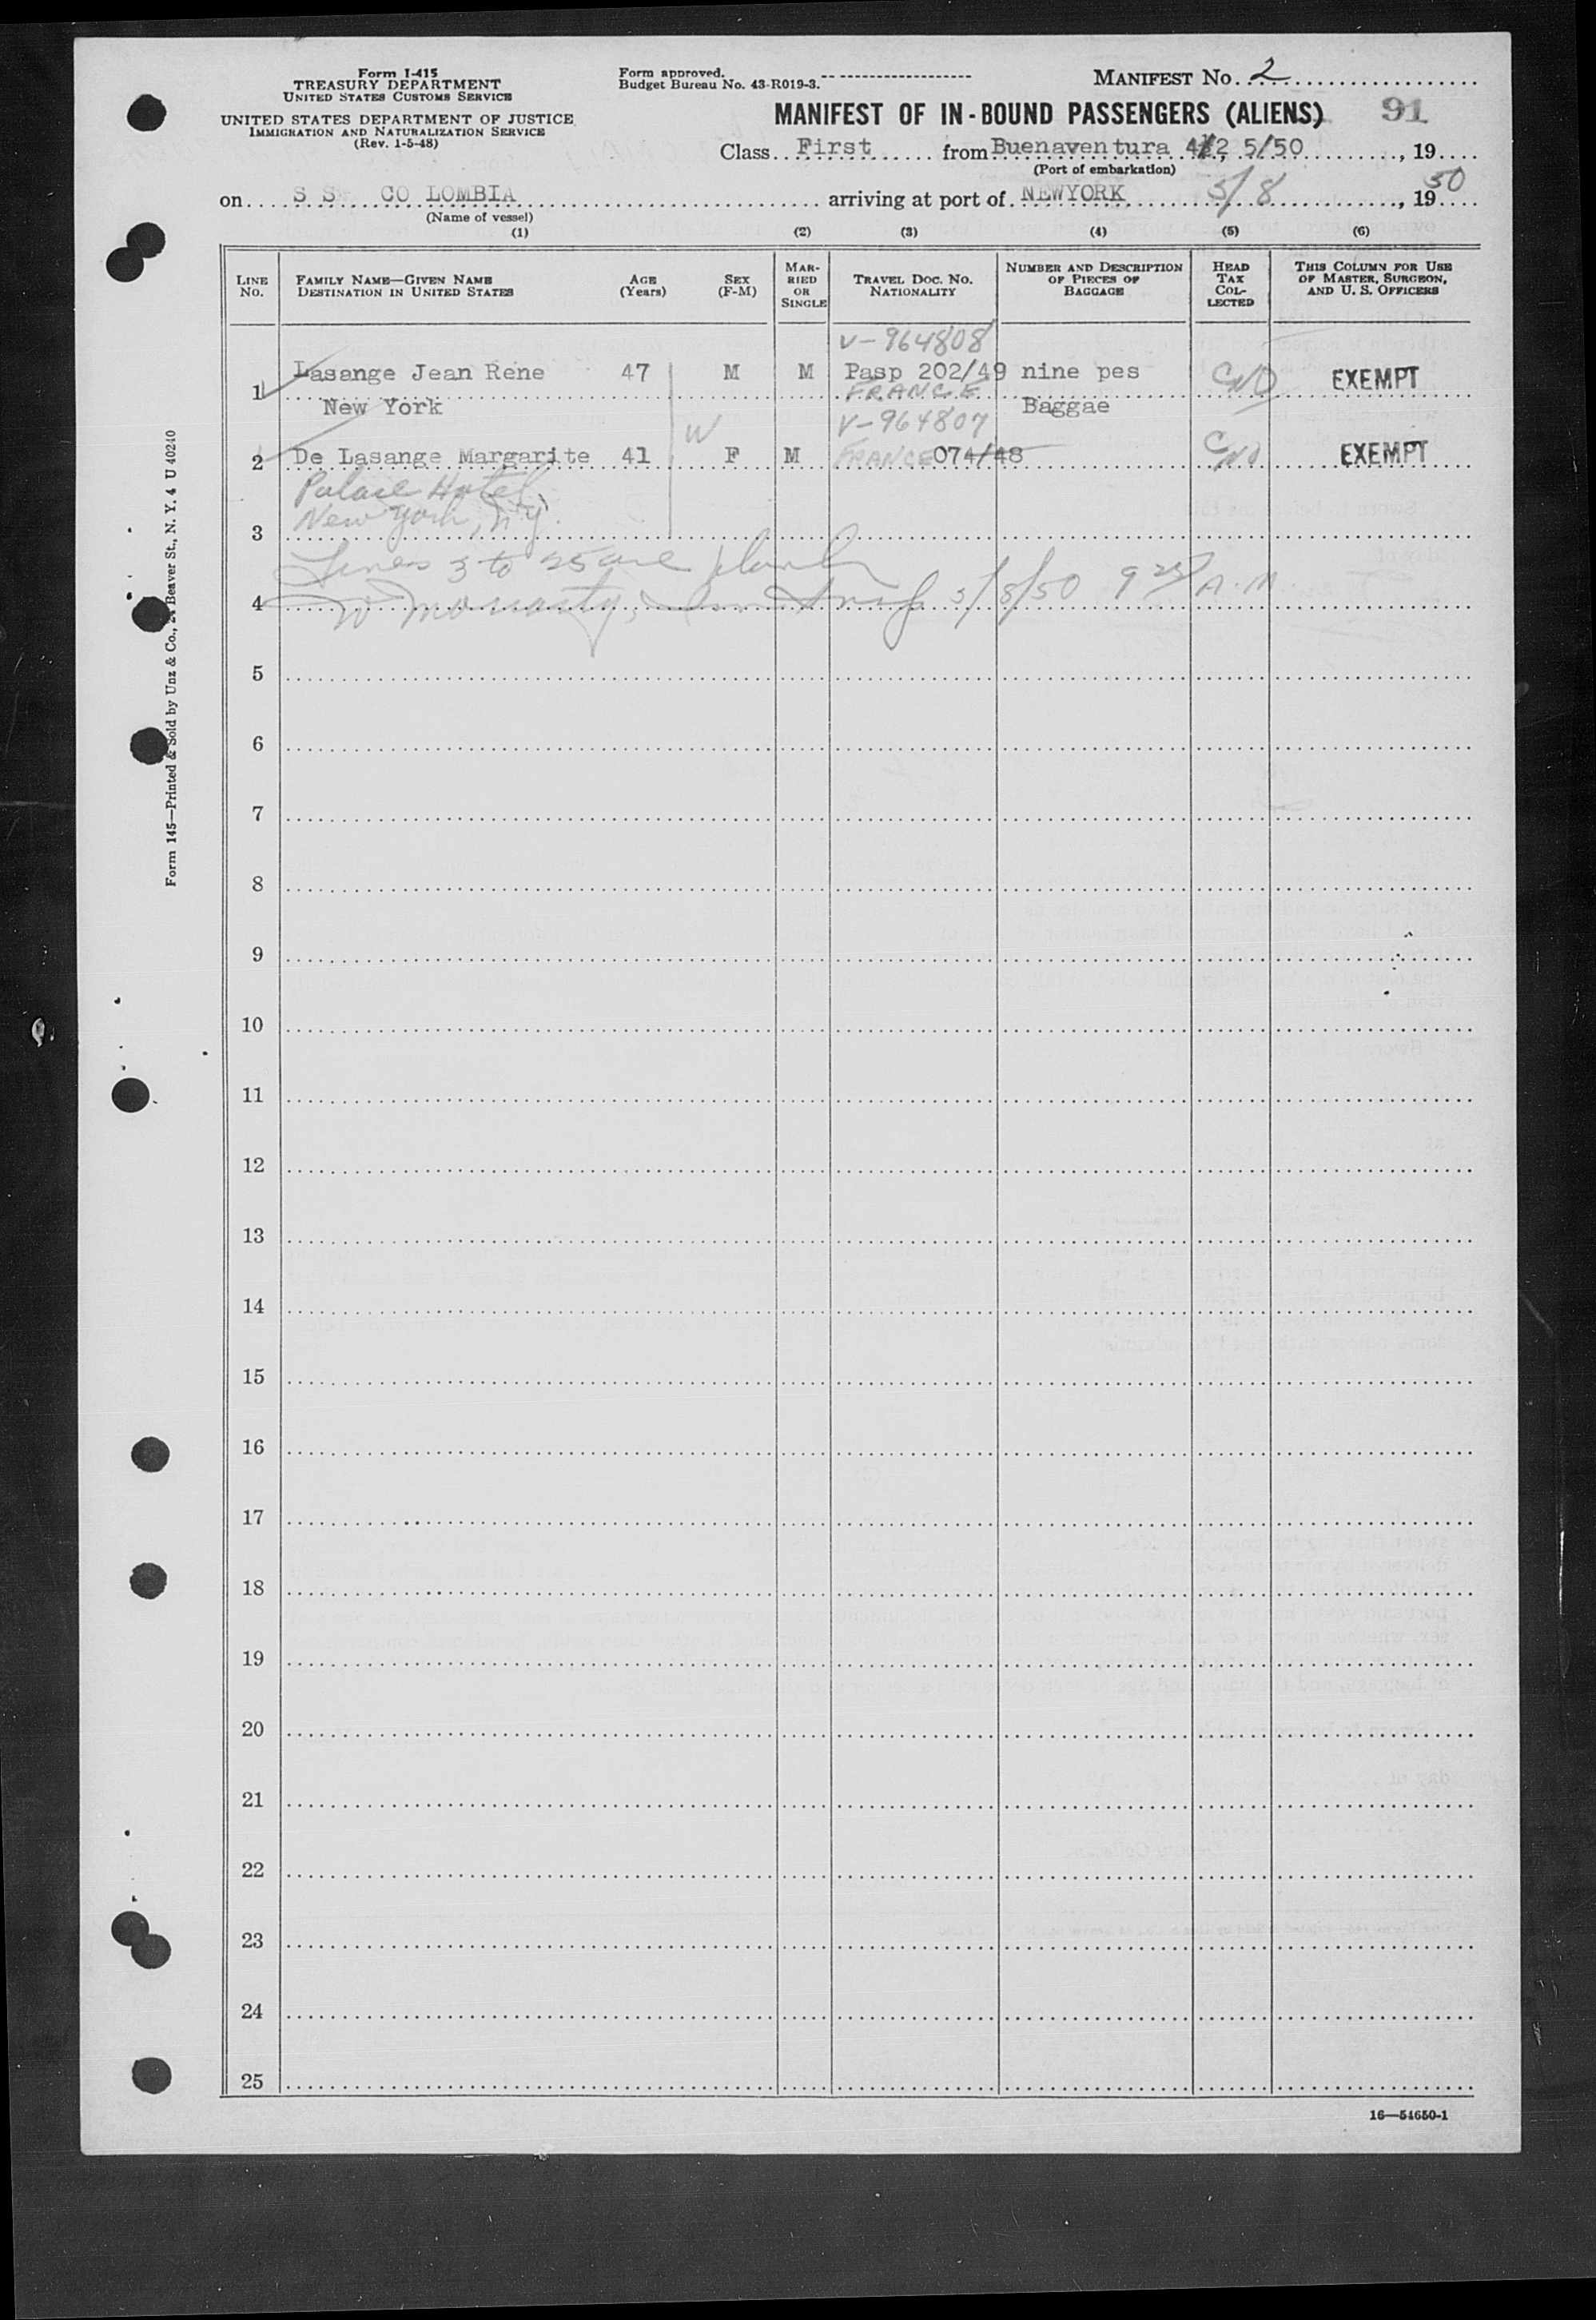 Form I-415
TREASURY DEPARTMENT
UNITED STATES CUSTOMS SERVICE
UNITED STATES DEPARTMENT OF JUSTICE
IMMIGRATION AND NATURALIZATION SERVICE
(Rev. 1-5-48)
Form approved.
Budget Bureau No. 43-R019-3.
MANIFEST NO. 2
MANIFEST OF IN-BOUND PASSENGERS (ALIENS) 91
Class First from Buenaventura 5/50, 19
(Port of embarkation)
on S S CO LOMBIA arriving at port of NEWYORK 5/8, 1950
(Name of vessel)
(1) (2) (3) (4) (5) (6)
LINE NO. FAMILY NAME—GIVEN NAME DESTINATION IN UNITED STATES AGE (Years) SEX (F-M) MARRIED OR SINGLE TRAVEL DOC. NO. NATIONALITY NUMBER AND DESCRIPTION OF PIECES OF BAGGAGE HEAD TAX COLLECTED THIS COLUMN FOR USE OF MASTER, SURGEON, AND U. S. OFFICERS
V-964808
1 Lasange Jean Rene 47 M M Pasp 202/49 nine pes EXEMPT
FRANCE
New York Baggae
V-964807
W
2 De Lasange Margarite 41 F M FRANCE 074/48 EXEMPT
Palace Hotel
New York, N.Y.
3
Lines 3 to 25 are blank
4 W Moriarty, 5/8/50 9 25 A.M.
5
6
7
8
9
10
11
12
13
14
15
16
17
18
19
20
21
22
23
24
25
16—54650-1
Form 145—Printed & Sold by Unz & Co., 24 Beaver St., N. Y. 4 U 40240